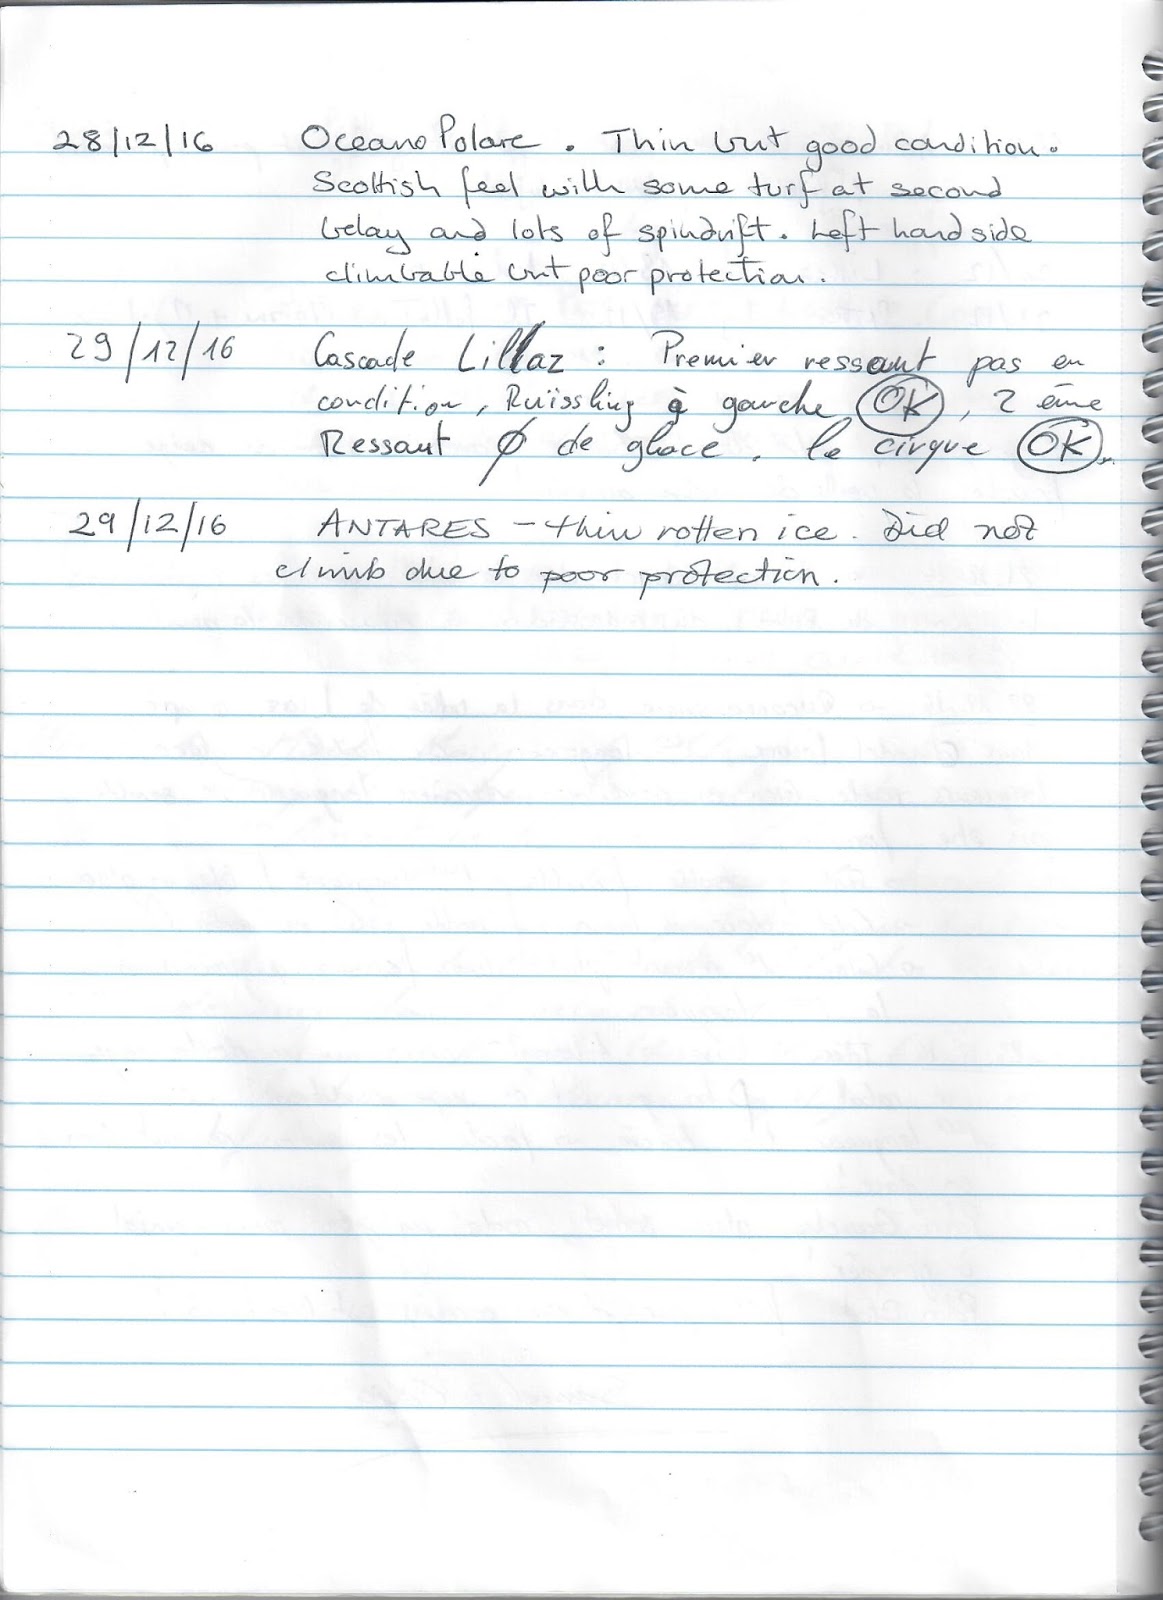 28/12/16 Oceano Polare. Thin but good condition.
Scottish feel with some turf at second
belay and lots of spindrift. Left hand side
climbable but poor protection.
29/12/16 Cascade Lillaz : Premier ressaut pas en
condition, Ruissling à gauche OK, 2 ème
Ressaut Ø de glace. le cirque OK.
29/12/16 ANTARES - thin rotten ice. Did not
climb due to poor protection.